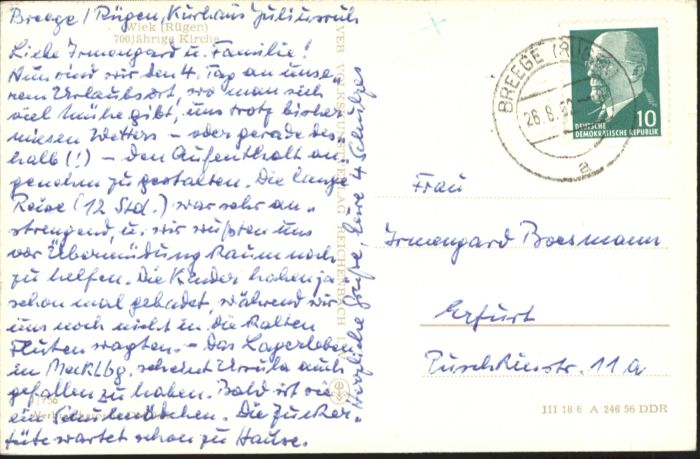 Breege/Rügen, Kurhaus Juliusruh
Wiek (Rügen)
700jährige Kirche
Liebe Irmengard u. Familie!
Nun sind wir den 4. Tag an unse-
rem Urlaubsort, wo man sich
viel Mühe gibt, uns trotz bisher
miesen Wetters – oder gerade des-
halb (!) – den Aufenthalt an-
genehm zu gestalten. Die lange
Reise (12 Std.) war sehr an-
strengend, u. wir wußten uns
vor Übermüdung kaum noch
zu helfen. Die Kinder haben ja
schon mal gebadet, während wir
uns noch nicht in die kalten
Fluten wagten. – Das Lagerleben
in Mecklbg. scheint Ursula auch
gefallen zu haben. Bald ist sie
ein Schulmädchen. Die Zucker-
tüte wartet schon zu Hause.
Herzliche Grüße, Eure 4 Schulzes
VEB VOLKSKUNSTVERLAG REICHENBACH
BREEGE
28.8.
a
10
DEUTSCHE
DEMOKRATISCHE REPUBLIK
Frau
Irmengard Boesmann
Erfurt
Puschkinstr. 11a
III 18 6 A 246 56 DDR